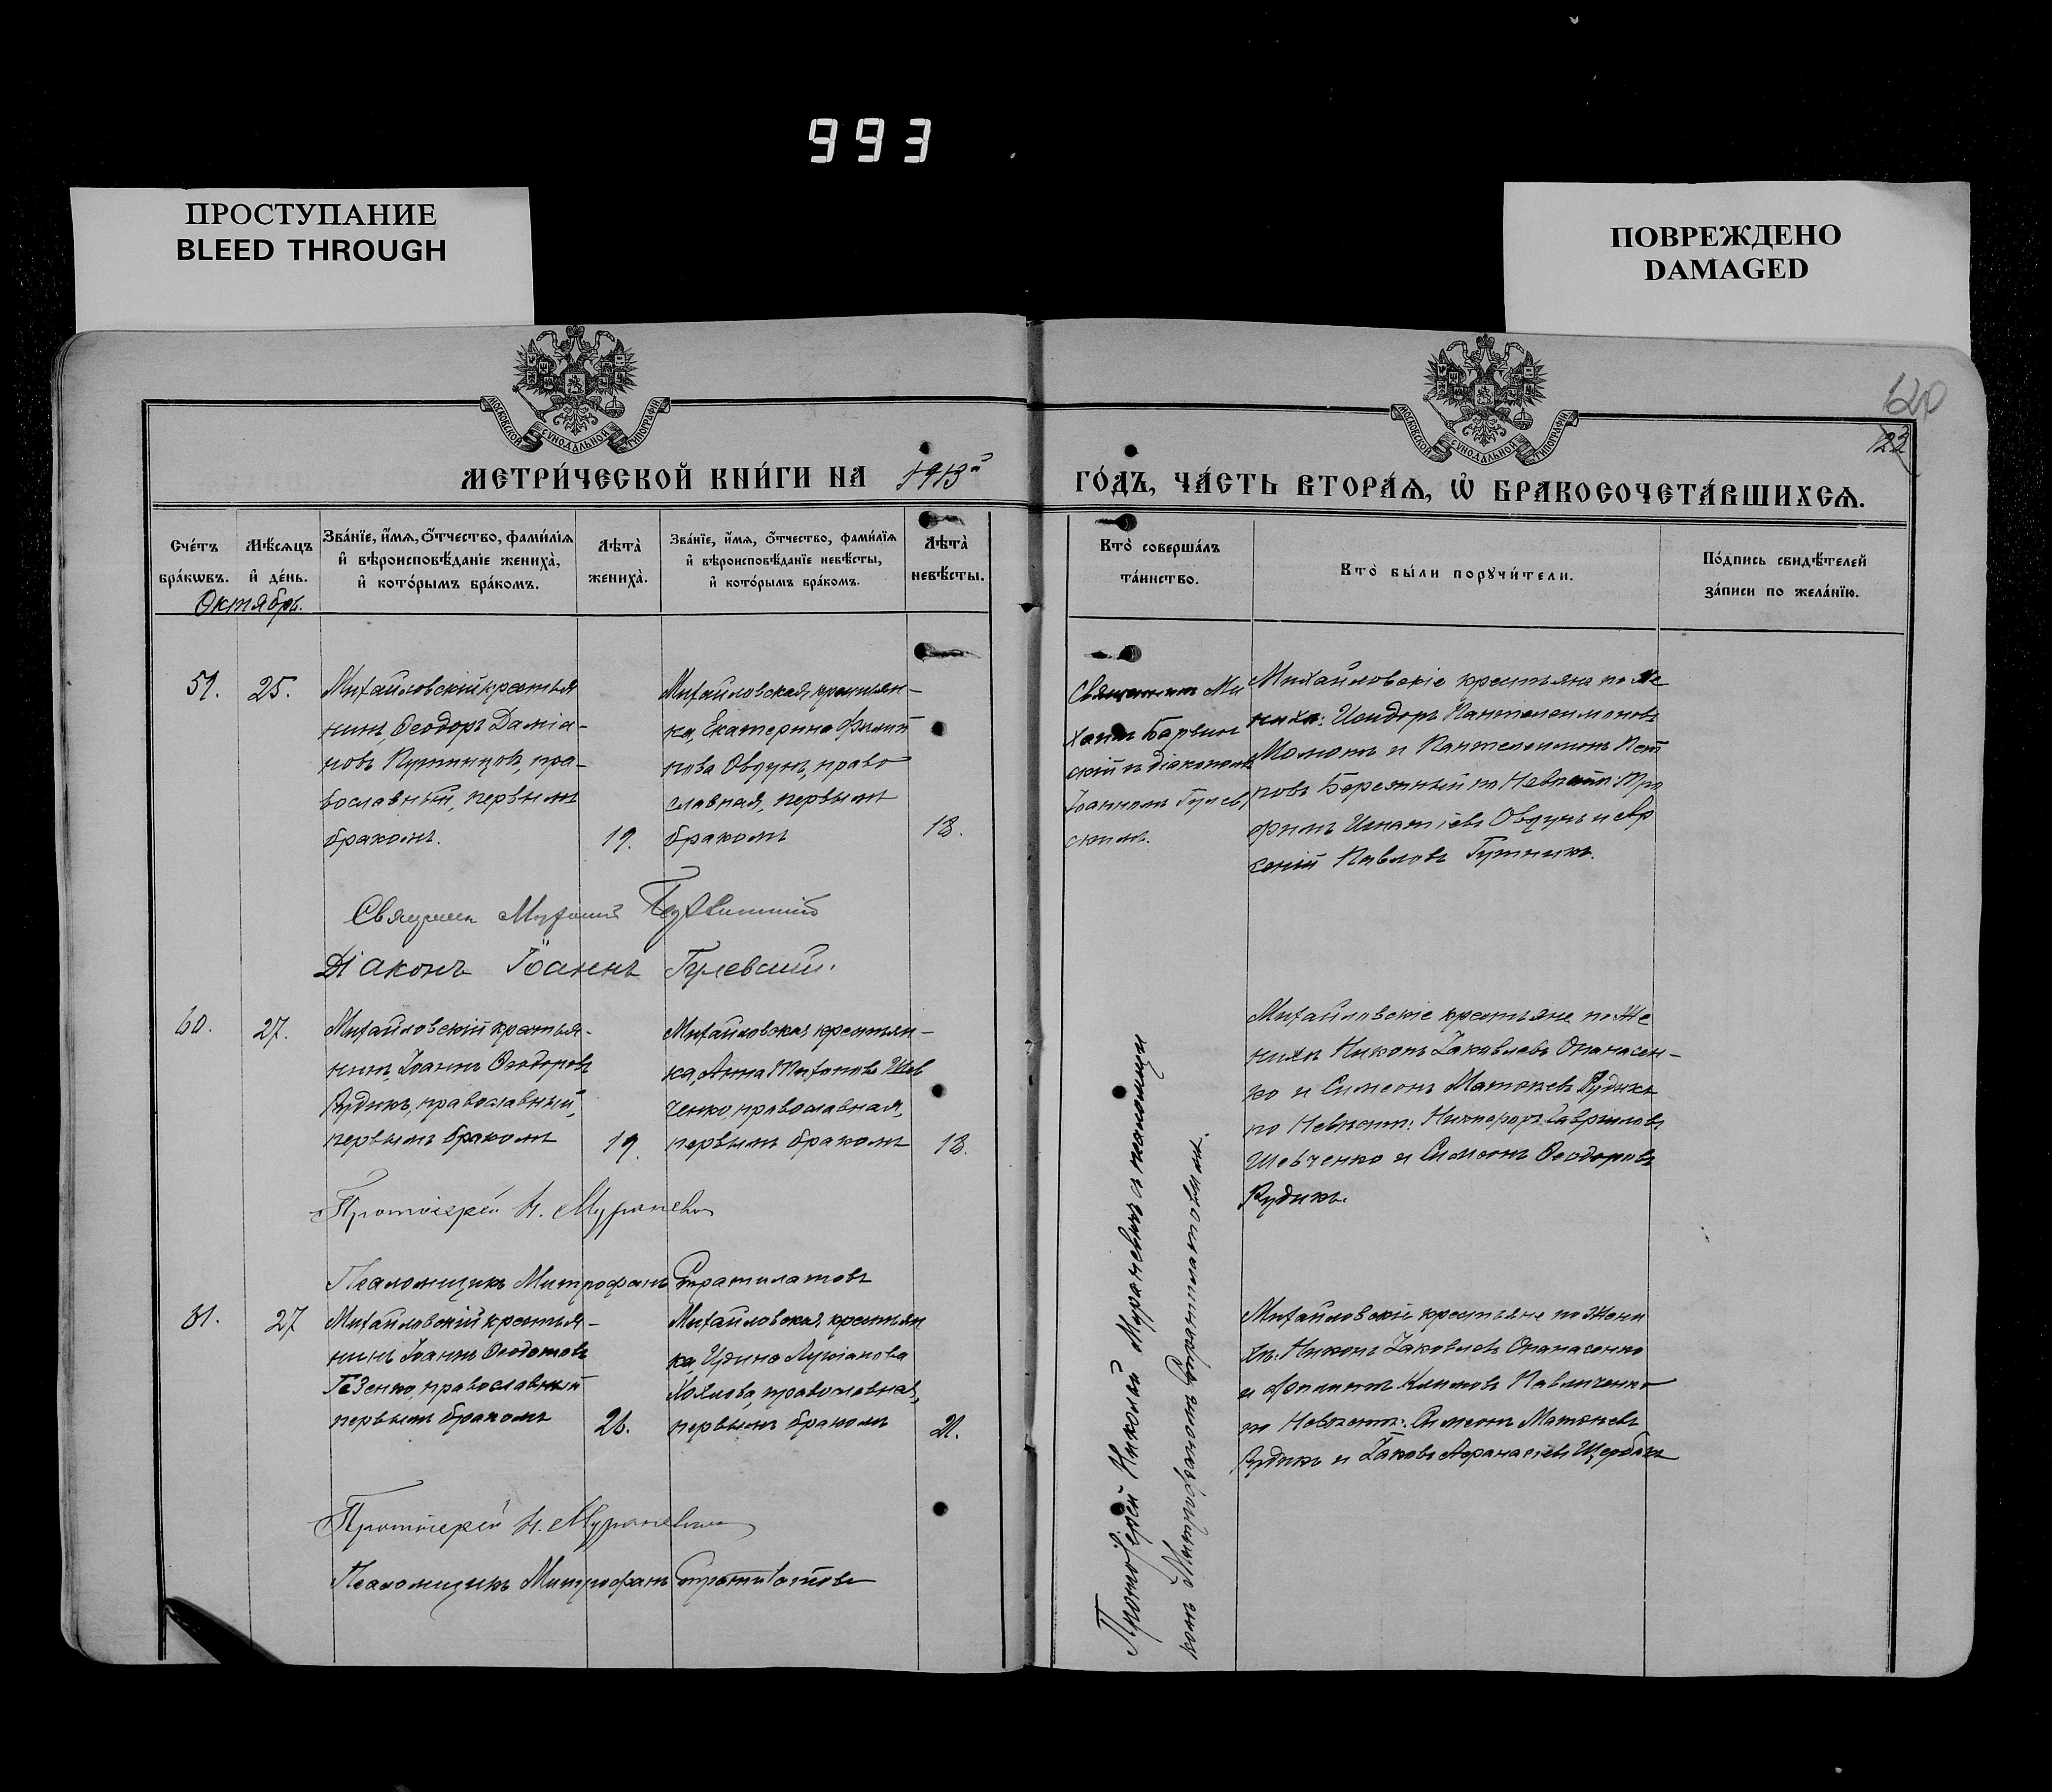 993
ПРОСТУПАНИЕ
BLEED THROUGH
ПОВРЕЖДЕНО
DAMAGED
МОСКОВСКОЙ СѴНОДАЛЬНОЙ ТИПОГРАФІИ
МОСКОВСКОЙ СѴНОДАЛЬНОЙ ТИПОГРАФІИ
620
122
МЕТРИ́ЧЕСКОЙ КНИ́ГИ НА 1913й ГО́ДЪ, ЧА́СТЬ ВТОРА́Ѧ, Ѡ҆ БРАКОСОЧЕТА́ВШИХСѦ.
Сче́тъ бра́кѡвъ.
Мѣ́сяцъ и҆ де́нь.
Зва́нїе, и҆́мѧ, ѻ҆́тчество, фами́лїѧ и҆ вѣроисповѣ́данїе жениха̀, и҆ кото́рымъ бра́комъ.
Лѣта̀ жениха̀.
Зва́нїе, и҆́мѧ, ѻ҆́тчество, фами́лїѧ и҆ вѣроисповѣ́данїе невѣ́сты, и҆ кото́рымъ бра́комъ.
Лѣта̀ невѣ́сты.
Кто̀ соверша́лъ та́инство.
Кто̀ бы́ли порꙋчи́тели.
По́дпись свидѣ́телей за́писи по жела́нїю.
Октябрь.
59. 25.
Михайловскій крестья
нинъ, Ѳеодоръ Даміа-
новъ пра-
вославный, первымъ
бракомъ. 19.
Михайловская крестьян-
ка, Екатерина Филип
пова Овдунъ, право
славная, первымъ
бракомъ 18.
Священникъ Ми
хаилъ
скій и діаконъ
Іоаннъ Гулев
скимъ.
Михайловскіе крестьяне по Же
нихѣ: Исидоръ Пантелеимоновъ
Момотъ и Пантелеимонъ Пет
ровъ Бережный по Невѣстѣ: Тро
фимъ Игнатіевъ Овдунъ и Ар
сеній Павловъ Гутникъ.
Священн Михаилъ
Діаконъ Іоаннъ Гулевскій.
60. 27.
Михайловскій крестья-
нинъ, Іоаннъ Ѳеодоровъ
Рудикъ, православный,
первымъ бракомъ 19.
Михайловская крестьян-
ка, Анна Тихонова Шев
ченко православная,
первымъ бракомъ 18.
Михайловскіе крестьяне по Же
нихѣ Никонъ Іаковлевъ Опанасен-
ко и Симеонъ Матѳіевъ Рудикъ
по Невѣстѣ: Никифоръ Гавриловъ
Шевченко и Симеонъ Ѳеодоровъ
Рудикъ.
Протоіерей Н. Мураневичъ
Псаломщикъ Митрофанъ Стратилатовъ
61. 27
Михайловскій крестья-
нинъ Іоаннъ Ѳеодотовъ
Гезенко, православный
первымъ бракомъ 26.
Михайловская крестьян
ка, Ирина Лукіанова
православная,
первымъ бракомъ 21.
Михайловскіе крестьяне по Жени
хѣ: Никонъ Іаковлевъ Опанасенко
и Филиппъ Климовъ Павличенко
по Невѣстѣ: Симеонъ Матѳіевъ
Рудикъ и Іаковъ Аѳанасіевъ Щербакъ
Протоіерей Николай Мураневичъ съ псаломщи
комъ Митрофаномъ Стратилатовымъ.
Протоіерей Н. Мураневичъ
Псаломщикъ Митрофанъ Стратилатовъ